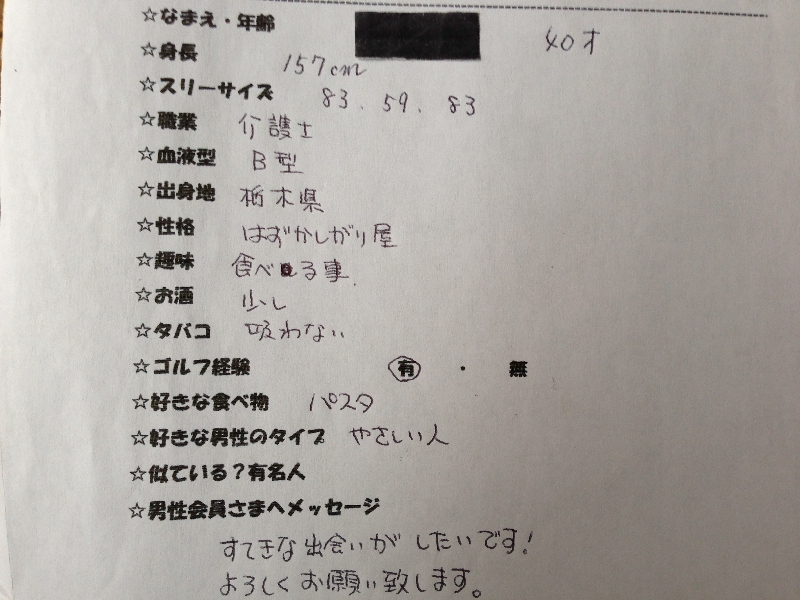 ☆なまえ・年齢 40才
☆身長 157cm
☆スリーサイズ 83. 59. 83
☆職業 介護士
☆血液型 B型
☆出身地 栃木県
☆性格 はずかしがり屋
☆趣味 食べる事
☆お酒 少し
☆タバコ 吸わない
☆ゴルフ経験 有 ・ 無
☆好きな食べ物 パスタ
☆好きな男性のタイプ やさしい人
☆似ている?有名人
☆男性会員さまへメッセージ
すてきな出会いがしたいです!
よろしくお願い致します。